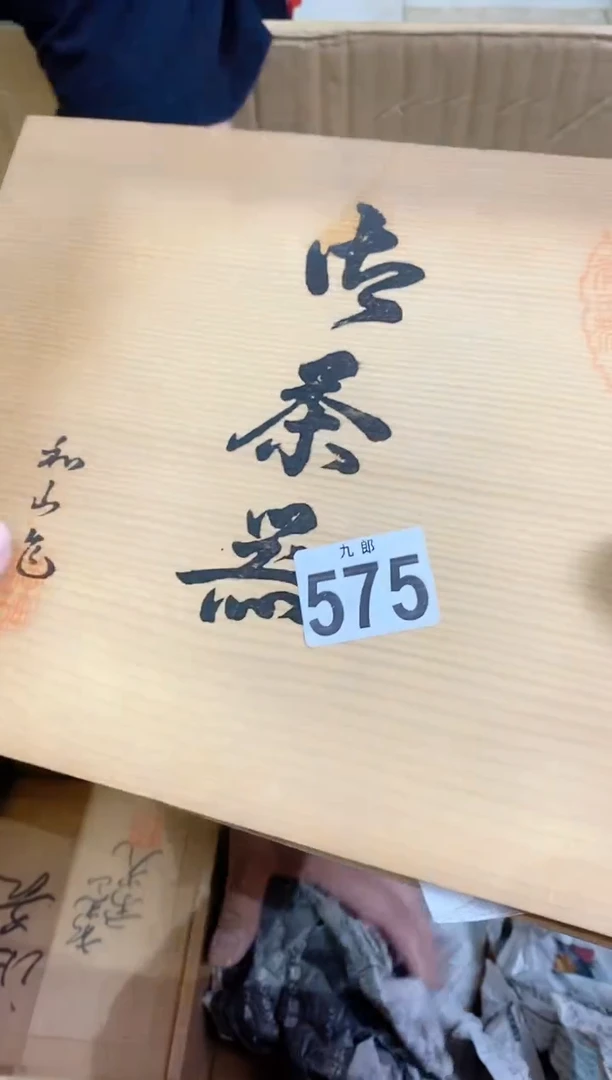 御
茶
器
和山作
九郎
575